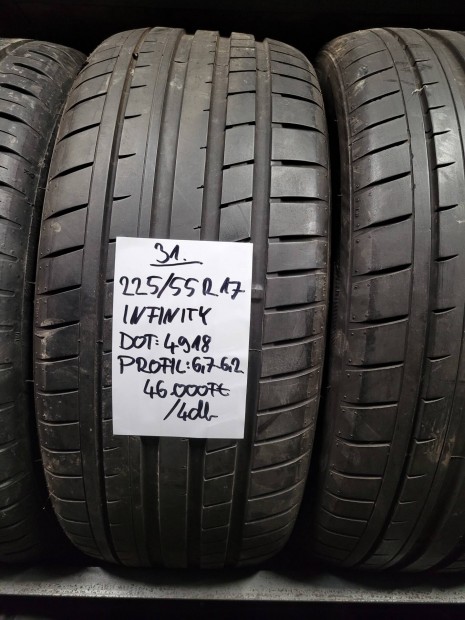 31.
225/55 R 17
INFINITY
DOT: 4918
PROFIL: 6,7-6,2
46.000Ft
/4db